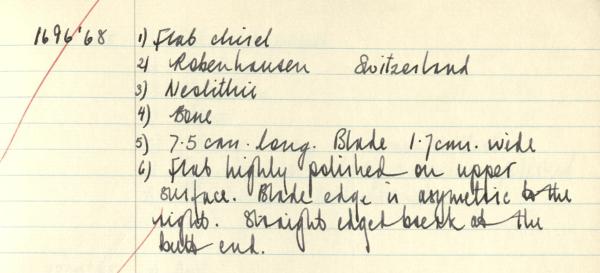 1696'68 1) Flat chisel
2) Robenhausen Switzerland
3) Neolithic
4) Bone
5) 7.5cm. long. Blade 1.7cm. wide
6) Flat highly polished on upper
surface. Blade edge is asymetric to the
right. Straight edged break at the
butt end.